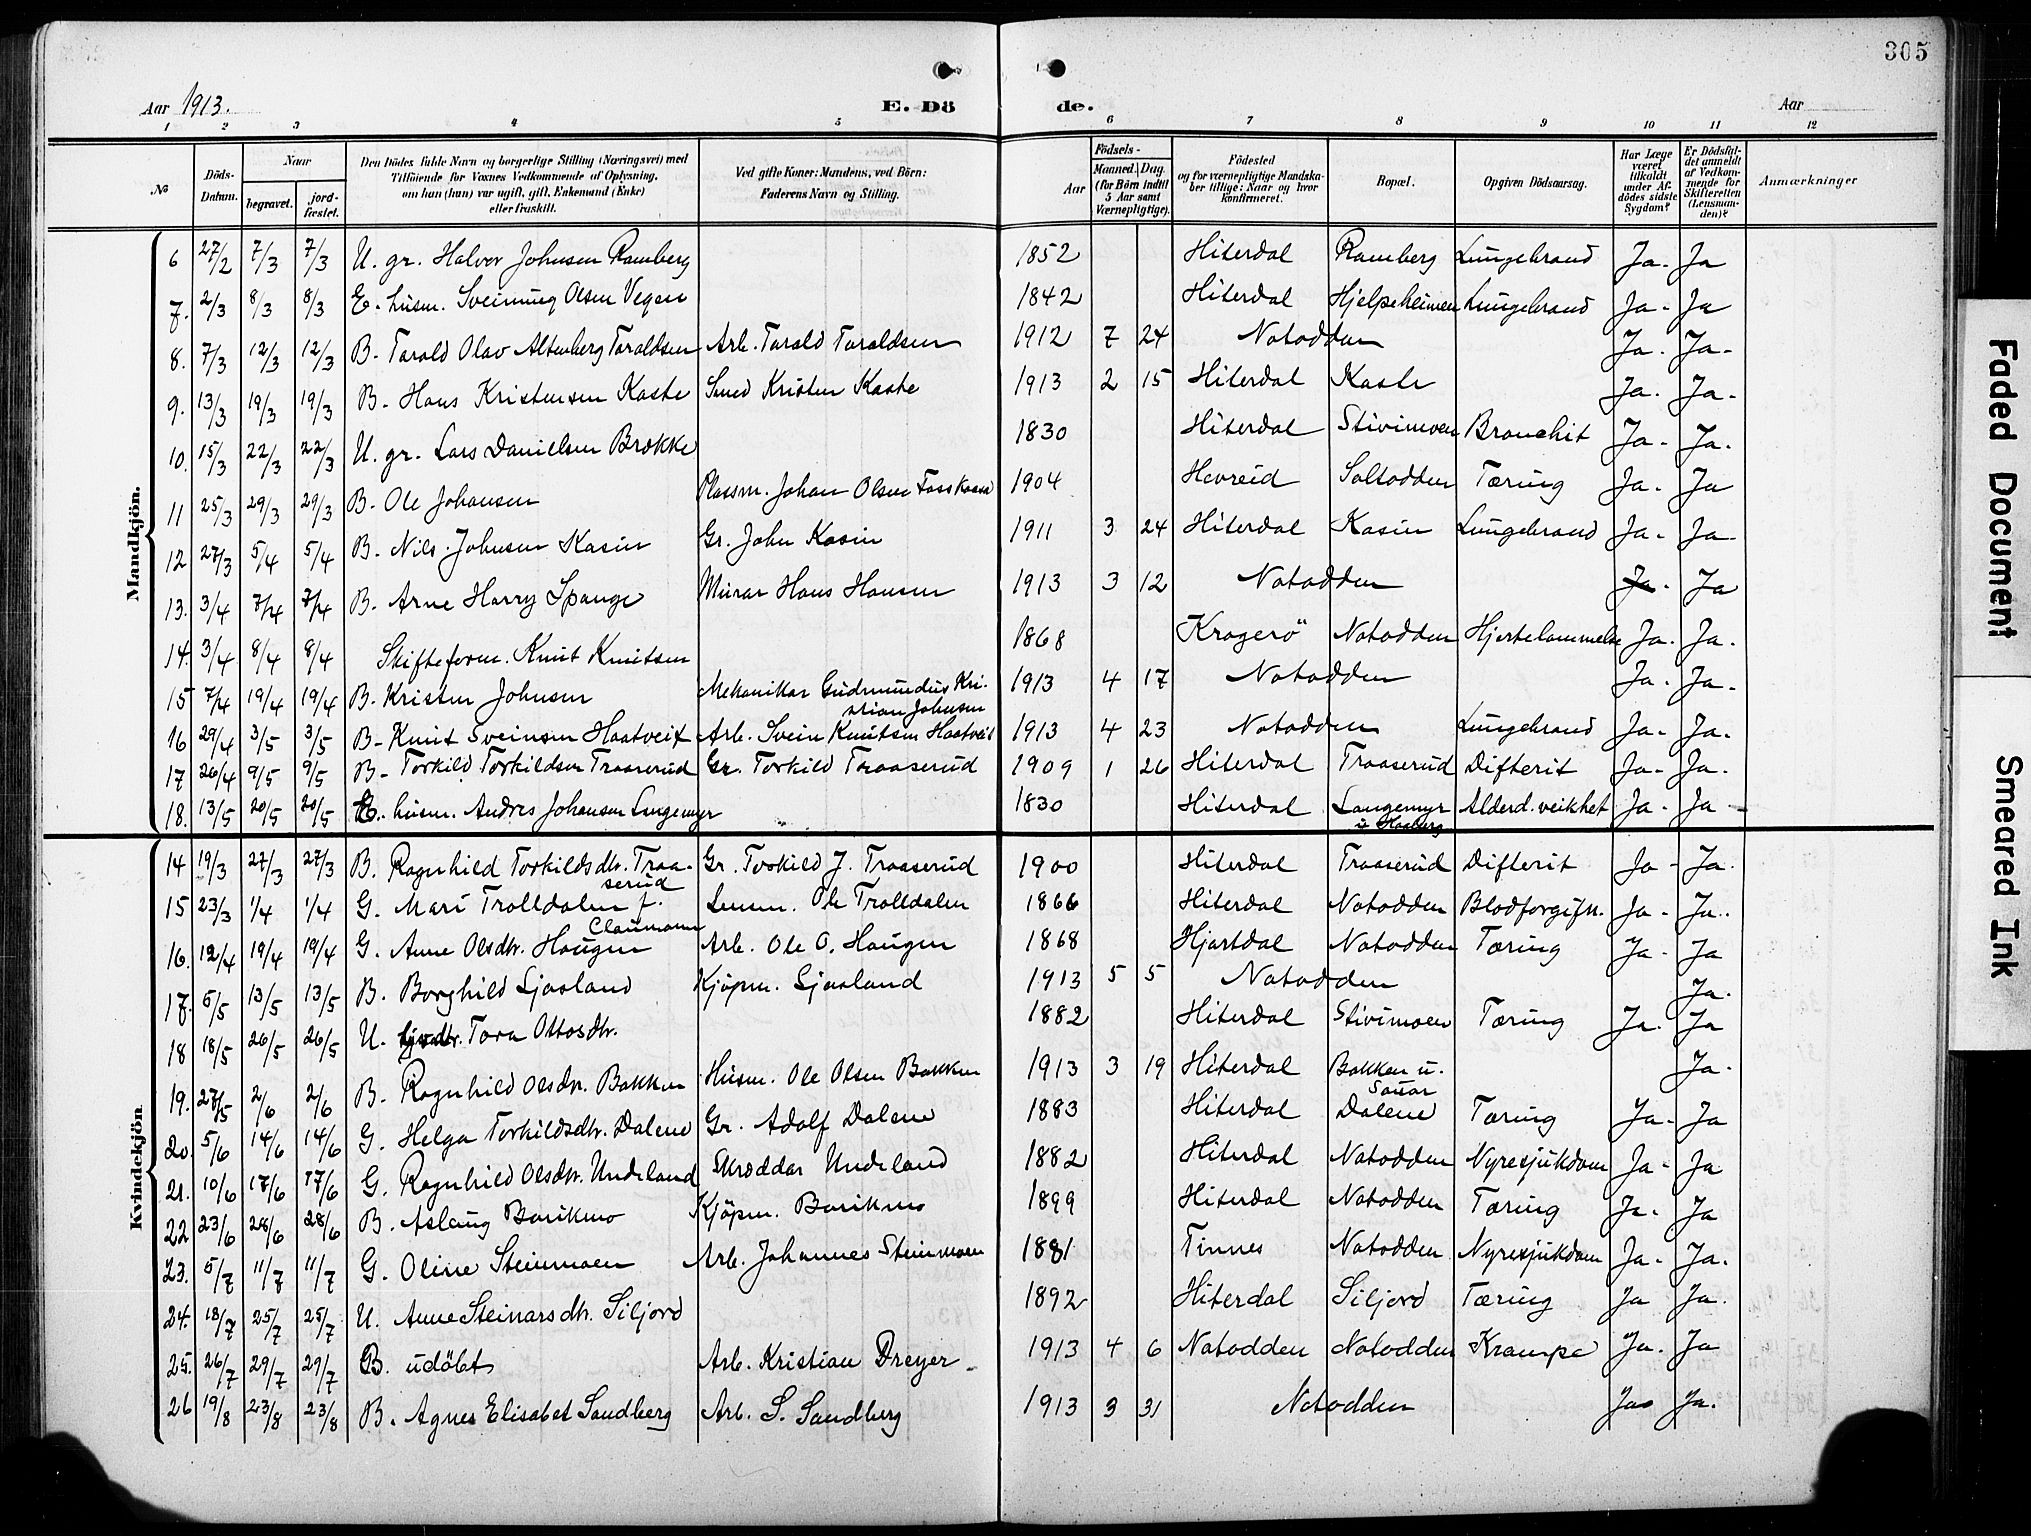 305
Aar 1913. E. Dö de. Aar
1 2 3 4 5 6 7 8 9 10 11 12
No
Döds-Datum.
Naar
begravet.
jord-fæstet.
Den Dødes fulde Navn og borgerlige Stilling (Næringsvei) med
Tilföiende for Voxnes Vedkommende af Oplysning,
om han (hun) var ugift, gift, Enkemand (Enke)
eller fraskilt.
Ved gifte Koner: Mandens, ved Börn:
Faderens Navn og Stilling.
Födsels-
Aar
Maaned. Dag.
(for Börn indtil
5 Aar samt
Værnepligtige).
Födested
og for værnepligtige Mandska-
ber tillige: Naar og hvor
konfirmeret.
Bopæl.
Opgiven Dödsaarsag.
Har Læge
været
tilkaldt
under Af-
dödes sidste
Sygdom?
Er Dödsfal-
det anmeldt
af Vedkom-
mende for
Skifteretten
(Lensman-
den)?
Anmærkninger
Mandkjön.
6 27/2 7/3 7/3 U. gr. Halvor Johnsen Ramberg 1852 Hiterdal Ramberg Lungebrand Ja. Ja
7. 2/3 8/3 8/3 E. husm. Sveinung Olsen Vegen 1842 Hiterdal Hjelpeheimen Lungebrand Ja. Ja
8. 7/3 12/3 12/3 B. Tarald Olav Altenberg Taraldsen Arb. Tarald Taraldsen 1912 7 24 Notodden Ja. Ja.
9. 13/3 19/3 19/3 B. Hans Kristensen Kaste Smed Kristen Kaste 1913 2 15 Hiterdal Kaste Ja. Ja.
10. 15/3 22/3 22/3 U. gr. Lars Danielsen Brække 1830 Hiterdal Stivimoen Bronchit Ja. Ja.
11 25/3 29/3 29/3 B. Ole Johansen Plassm. Johan Olsen Fosskaasa 1904 Hovreid Saltodden Tæring Ja. Ja
12 27/3 5/4 5/4 B. Nils Johnsen Kasin Gr. John Kasin 1911 3 24 Hiterdal Kasin Lungebrand Ja. Ja
13. 3/4 7/4 7/4 B. Arne Harry Spange Murar Hans Hansen 1913 3 12 Notodden Ja. Ja
14. 3/4 8/4 8/4 Skifteform. Knut Knutsen 1868 Kragerö Notodden Hjertelammelse Ja. Ja.
15 7/4 19/4 19/4 B. Kristen Johnsen Mekanikar Gudmundus Kri- 1913 4 17 Notodden Ja. Ja.
stian Johnsen
16 29/4 3/5 3/5 B. Knut Sveinsen Haatveit Arb. Svein Knutsen Haatveit 1913 4 23 Notodden Lungebrand Ja. Ja.
17 26/4 9/5 9/5 B. Torkild Torkildsen Traaserud Gr. Torkild Traaserud 1909 1 26 Hiterdal Traaserud Difterit Ja. Ja.
18. 13/5 20/5 20/5 E. husm. Andres Johansen Langemyr 1830 Hiterdal Langemyr Alderd. veikhet Ja. Ja
Kvindekjön.
14 19/3 27/3 27/3 B. Ragnhild Torkildsdtr. Traa- Gr. Torkild J. Traaserud 1900 Hiterdal Traaserud Difterit Ja - Ja
serud
15 23/3 1/4 1/4 G. Mari Trolldalen f. Lensm. Ole Trolldalen 1866 Hiterdal Notodden Blodforgift. Ja - Ja.
Claumann
16. 12/4 19/4 19/4 G. Anne Olsdtr. Haugen Arb. Ole O. Haugen 1868 Hjartdal Notodden Tæring Ja - Ja
17. 5/5 13/5 13/5 B. Borghild Ljosland Kjöpm. Ljosland 1913 5 5 Notodden Ja.
18 18/5 26/5 26/5 U. Tora Ottosdtr. 1882 Hiterdal Stivimoen Tæring Ja. Ja
19. 27/5 2/6 2/6 B. Ragnhild Olsdtr. Bakken Husm. Ole Olsen Bakken 1913 3 19 Hiterdal Bakken u. Ja.
Sauar
20. 5/6 14/6 14/6 G. Helga Torkildsdtr. Dalene Gr. Adolf Dalene 1883 Hiterdal Dalene Tæring Ja. Ja
21. 10/6 17/6 17/6 G. Ragnhild Olsdtr. Undeland Skræddar Undeland 1882 Hiterdal Notodden Nyresjukdom Ja - Ja
22 23/6 28/6 28/6 B. Aslaug Barikmo Kjöpm. Barikmo 1899 Hiterdal Notodden Tæring Ja. Ja
23. 5/7 11/7 11/7 G. Oline Steinmoen Arb. Johannes Steinmoen 1881 Tinnes Notodden Nyresjukdom Ja. Ja.
24. 18/7 25/7 25/7 U. Anne Steinarsdtr. Siljord 1892 Hiterdal Siljord Tæring Ja Ja.
25. 26/7 29/7 29/7 B. udöbt Arb. Kristian Dreyer 1913 4 6 Notodden Notodden Krampe Ja. Ja
26 19/8 23/8 23/8 B. Agnes Elisabet Sandberg Arb. S. Sandberg 1913 3 31 Notodden Ja Ja.
Faded Document
Smeared Ink